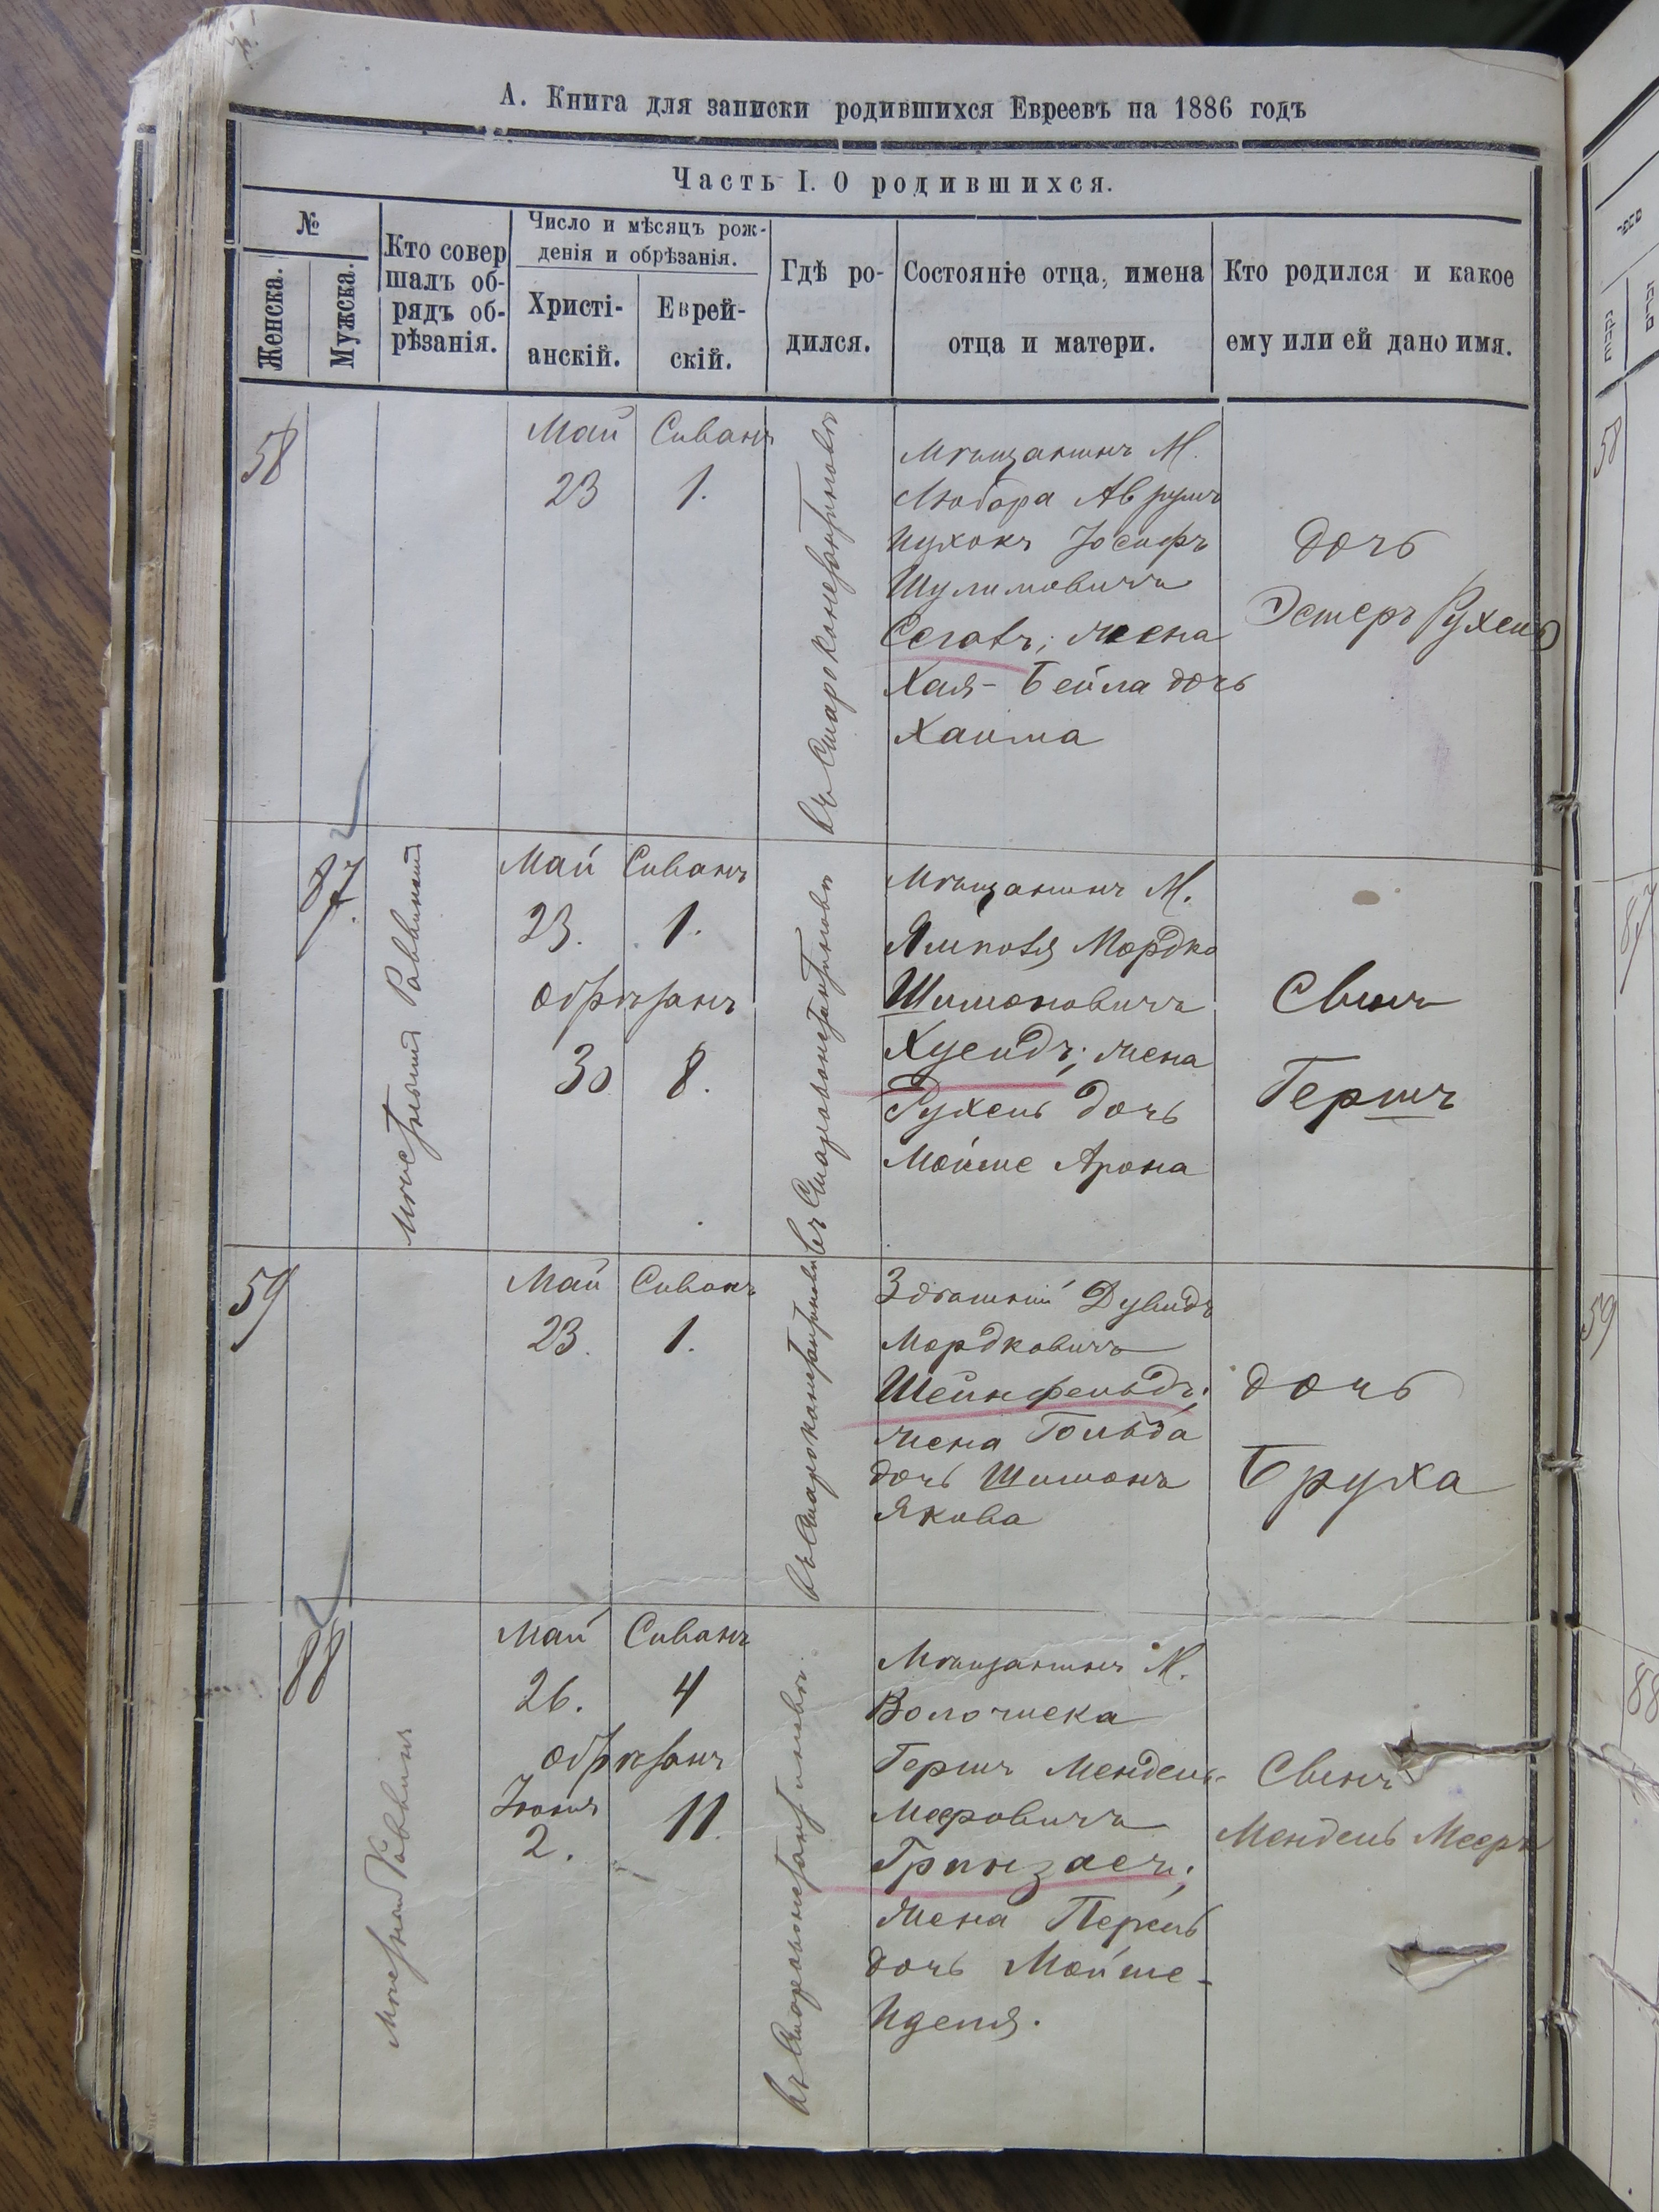 А. Книга для записки родившихся Евреевъ на 1886 годъ
Часть I. О родившихся.
№
Женска.
Мужска.
Кто совер
шалъ об-
рядъ об-
рѣзанія.
Число и мѣсяцъ рож-
денія и обрѣзанія.
Христі-
анскій.
Еврей-
скій.
Гдѣ ро-
дился.
Состояніе отца, имена
отца и матери.
Кто родился и какое
ему или ей дано имя.
58
Май
23
Сиванъ
1.
въ Староконстантиновѣ
Мѣщанинъ М.
Любара Аврумъ
Ицхокъ Іосифъ
Шулимовичъ
Сегавъ; жена
Хая-Бейла дочь
Хаима
дочь
Эстеръ Рухель
87.
Мѣстный Раввинъ
Май
23.
Сиванъ
1.
обрѣзанъ
30
8.
въ Староконстантиновѣ
Мѣщанинъ М.
Ямполя Мордко
Шимоновичъ
жена
Рухель дочь
Мойше Арона
Сынъ
Гершъ
59
Май
23.
Сиванъ
1.
въ Староконстантиновѣ
Здѣшній Дувидъ
Мордковичъ
Шейнфельдъ;
жена Гольда
дочь Шимонъ
Якова
дочь
Бруха
88
Мѣстный Раввинъ
Май
26.
Сиванъ
4
обрѣзанъ
Іюнь
2.
11.
въ Староконстантиновѣ.
Мѣщанинъ М.
Волочиска
Гершъ Мендель-
Мееровичъ
жена Перель
дочь Мойше-
Иделя.
Сынъ
Мендель Мееръ
58
59
88